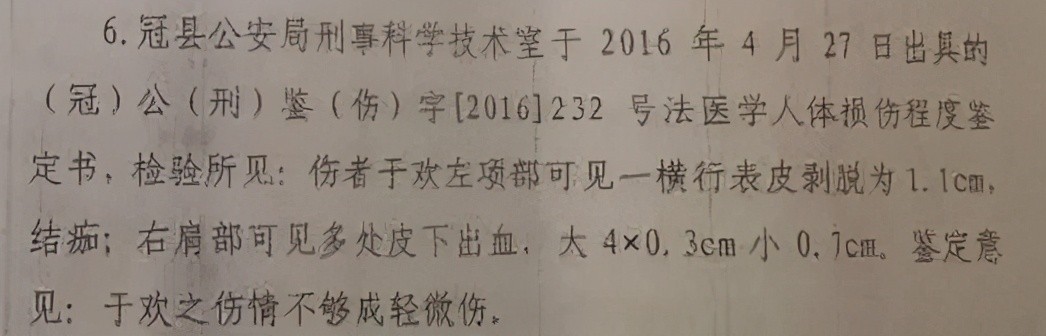 6.冠县公安局刑事科学技术室于 2016 年 4 月 27 日出具的
（冠）公（刑）鉴（伤）字[2016]232 号法医学人体损伤程度鉴
定书，检验所见：伤者于欢左项部可见一横行表皮剥脱为 1.1cm，
结痂；右肩部可见多处皮下出血，大 4×0.3cm 小 0.7cm。鉴定意
见：于欢之伤情不够成轻微伤。